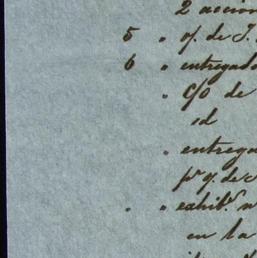 2 accion
5 " of. de J.
6 " entregado
" C/O de
id
" entrega
pr. of. de
" " exhibn. n
en la